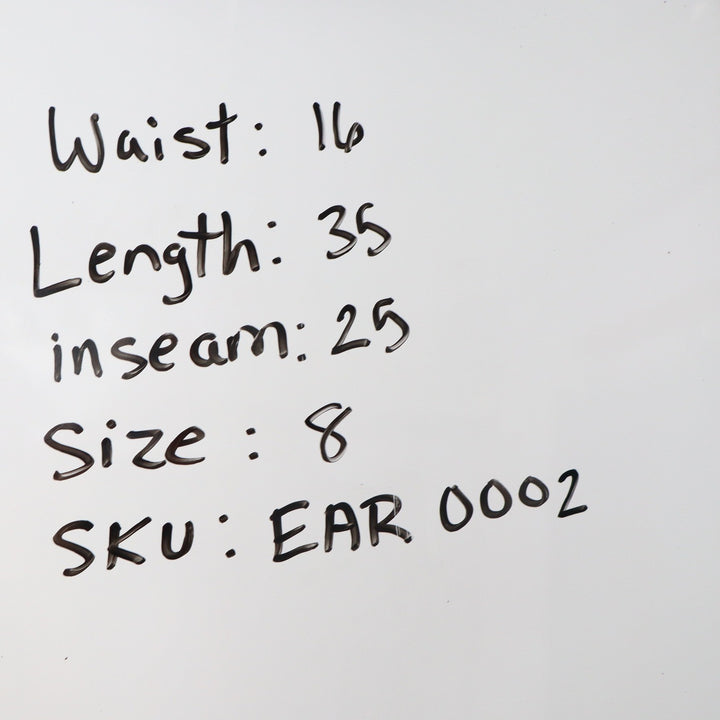 Waist: 16
Length: 35
inseam: 25
Size: 8
SKU: EAR 0002